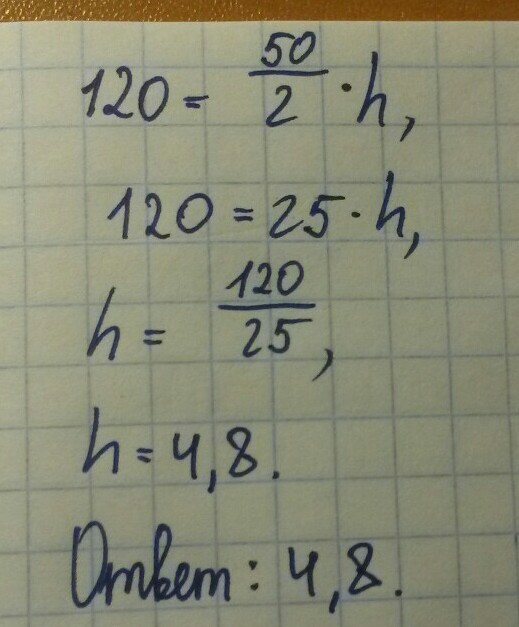 120 = 50/2 · h,
120 = 25 · h,
h = 120/25,
h = 4,8.
Ответ: 4,8.